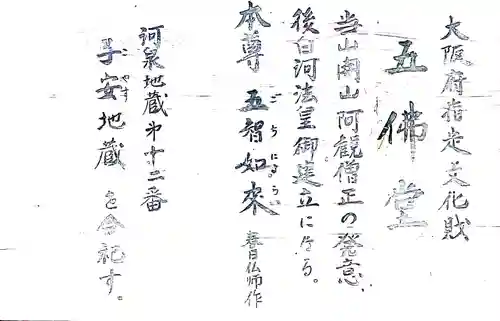 大阪府指定文化財
五佛堂
当山開山阿観僧正の発意
後白河法皇御建立になる。
本尊 五智如来
春日仏師作
河泉地蔵第十二番
子安地蔵 を合祀す。